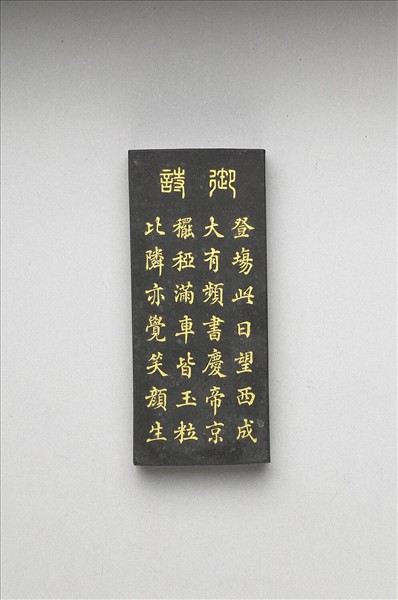 御詩
登塲此日望西成
大有頻書慶帝京
穲稏滿車皆玉粒
比隣亦覺笑顔生